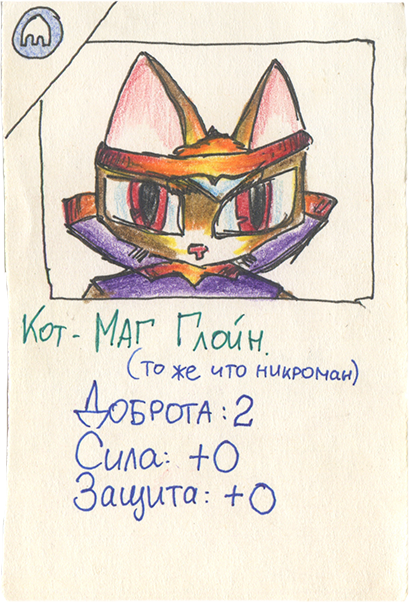 Кот-Маг Глойн.
(то же что никроман)
Доброта: 2
Сила: +0
Защита: +0